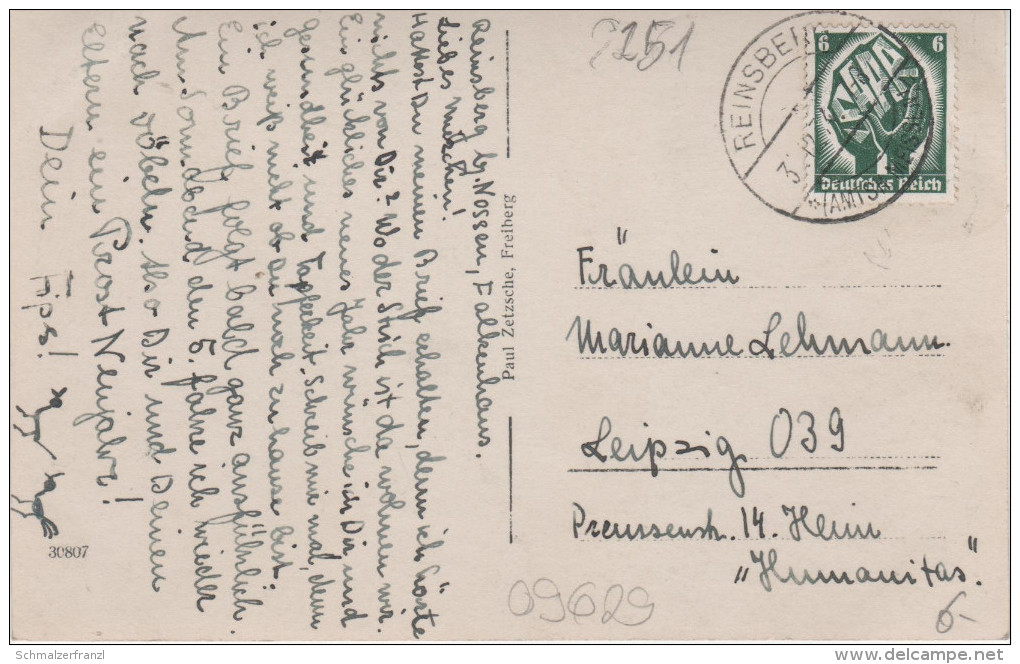 Reinsberg b. Nossen, Falkenhaus.
Liebes Mutschen!
Hattest Du meinen Brief erhalten, denn ich hörte
nichts von Dir? Wo der Strich ist da wohnen wir.
Ein glückliches neues Jahr wünsche ich Dir und
Gesundheit und Tapferkeit. Schreib mir mal, denn
ich weiß nicht ob du noch zu hause bist.
Ein Brief folgt bald ganz ausführlich
Am Sonnabend den 5. fahre ich wieder
nach Döbeln. Also Dir und Deinen
Eltern ein Prost Neujahr!
Dein Fips!
30807
Paul Zetzsche, Freiberg
2151
REINSBERG
(AMTSH.
6 6
Deutsches Reich
Fräulein
Marianne Lehmann.
Leipzig O39
Preussenstr. 14. Heim
„Humanitas."
09629
6-
Schmalzerfranzl
delcampe.net